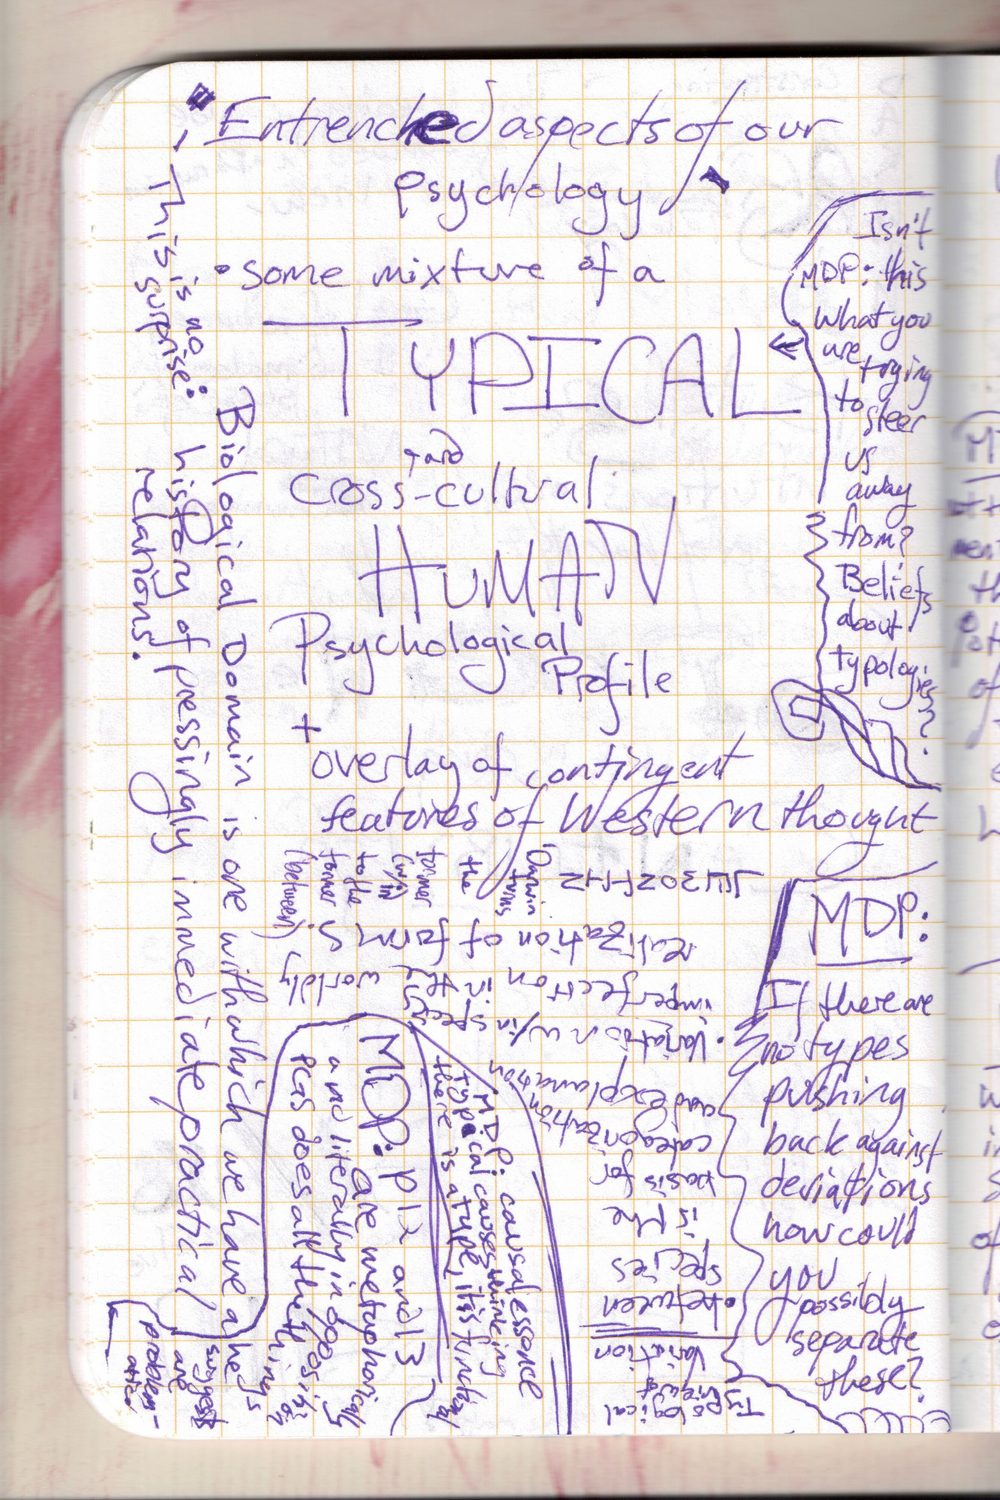 Entrenched aspects of our
Psychology
• some mixture of a
TYPICAL
and
cross-cultural
HUMAN
Psychological
Profile
+
overlay of contingent
features of Western thought
Isn't
MDP: this
what you
are trying
to steer
us
away
from?
Beliefs
about
typologies?
MDP:
If there are
no types
pushing
back against
deviations
how could
you
possibly
separate
these?
This is no
surprise:
Biological Domain is one with which we have a
history of pressingly immediate practical
relations.
suggests
are
problem-
atic?
MDP: p12 and 13
are metaphorically
and literally in opposing
pens does all the
MDP: causal essence
typical causes
there is a type, it's function
Typological
variation
• between
species
is the
basis for
categorization
and explanation
• Variation w/in
species is the
imperfection in
worldly
realization of forms
Darwin
turns
the
former
(w/in
to the
former
(between)